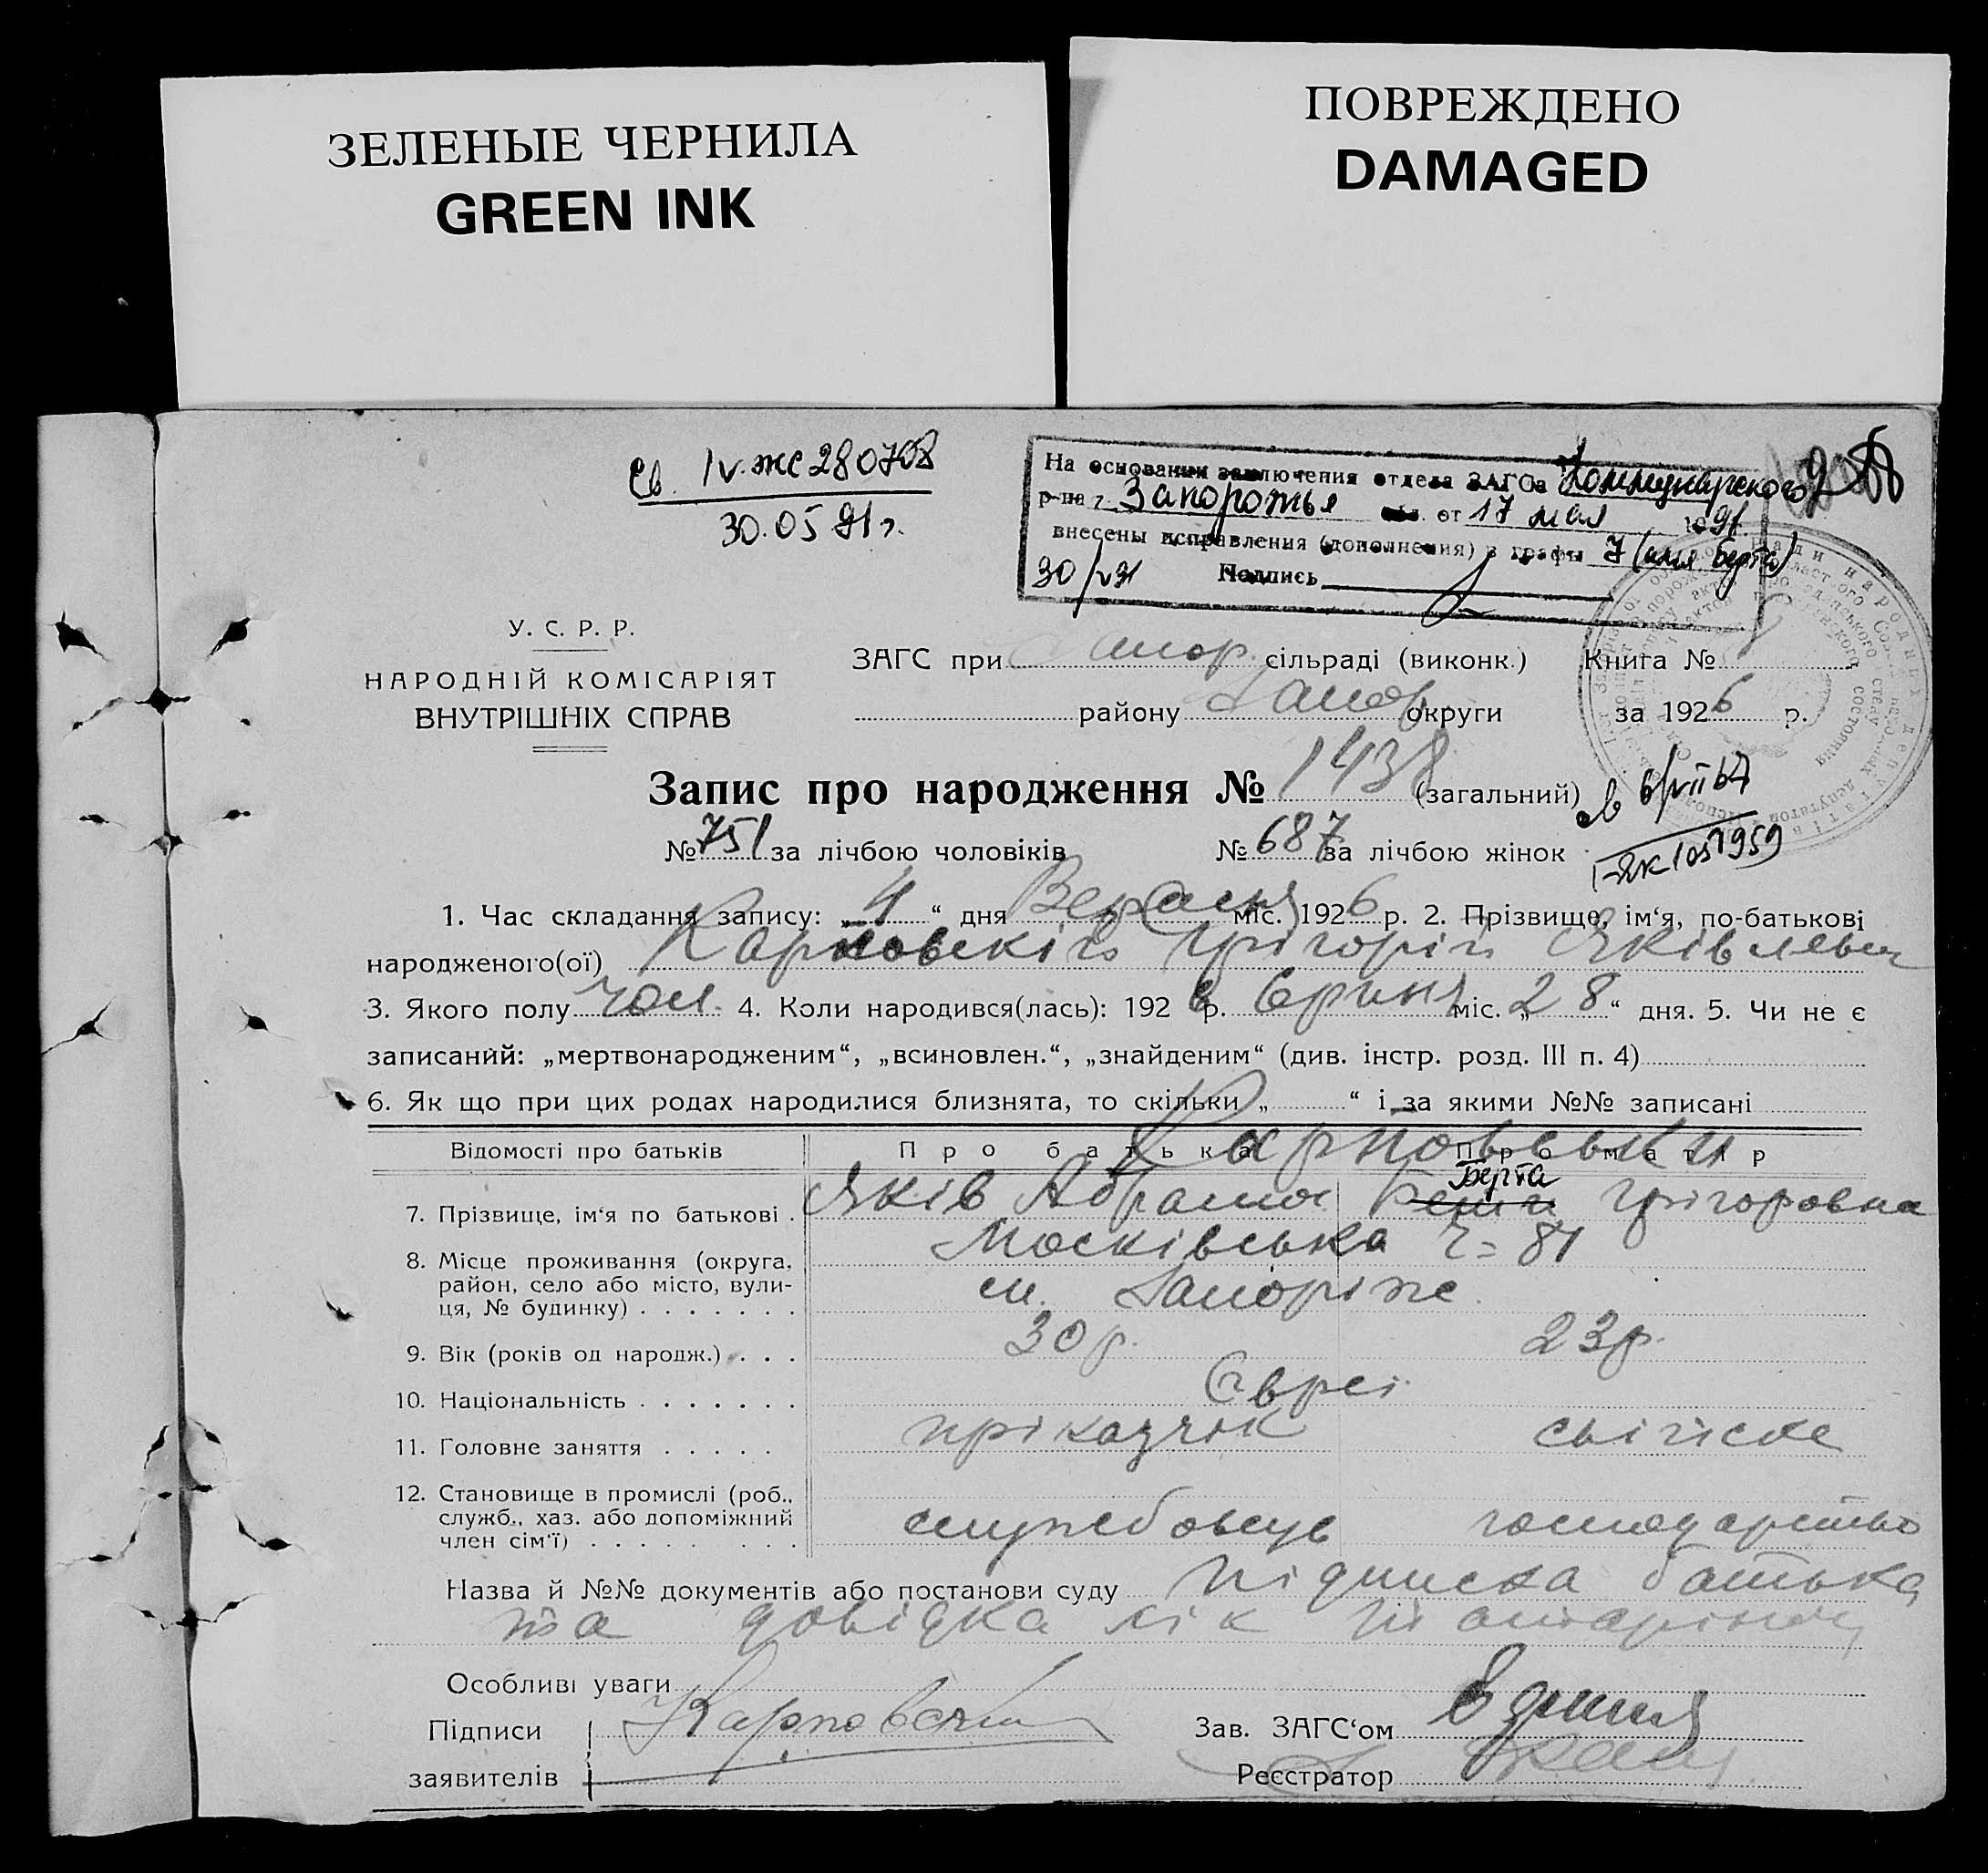 ЗЕЛЕНЫЕ ЧЕРНИЛА
GREEN INK
ПОВРЕЖДЕНО
DAMAGED
Св. IV-жс 280708
30.05 91 г.
На основании заключения отдела ЗАГСа Коммунарского
р-на г. Запорожья от 17 мая 1991
внесены исправления (дополнения) в графы 7 (имя Берта)
30/V 91 Подпись
У. С. Р. Р.
НАРОДНІЙ КОМІСАРІЯТ
ВНУТРІШНІХ СПРАВ
ЗАГС при Запор. сільраді (виконк.) Книга №
району Запор. округи за 1926 р.
Запис про народження № 1438 (загальний)
№ 751 за лічбою чоловіків № 687 за лічбою жінок
1. Час складання запису: „4“ дня Вересня міс. 1926 р. 2. Прізвище, ім‘я, по-батькові
народженого(ої) Карповскій Грігорій Яківлевич
3. Якого полу чол. 4. Коли народився(лась): 1926 р. Серпня міс. „28“ дня. 5. Чи не є
записаний: „мертвонародженим“, „всиновлен.“, „знайденим“ (див. інстр. розд. III п. 4)
6. Як що при цих родах народилися близнята, то скільки „ “ і за якими №№ записані
Відомості про батьків Про батька Про матір
Карповськи
Берта
7. Прізвище, ім‘я по батькові . Яків Абрамов Грігоровна
8. Місце проживання (округа, Московська ч= 81
район, село або місто, вули-
ця, № будинку) . . . . . . . м. Запоріже
9. Вік (років од народж.) . . . 30 р. 23 р.
10. Національність . . . . . . . Євреї
11. Головне заняття . . . . . пріказчік
12. Становище в промислі (роб.,
служб., хаз. або допоміжний службовець господарство
член сім‘ї) . . . . . . . .
Назва й №№ документів або постанови суду підписка батька
та довідка
Особливі уваги
Підписи Карповский Зав. ЗАГС‘ом
заявителів Реєстратор